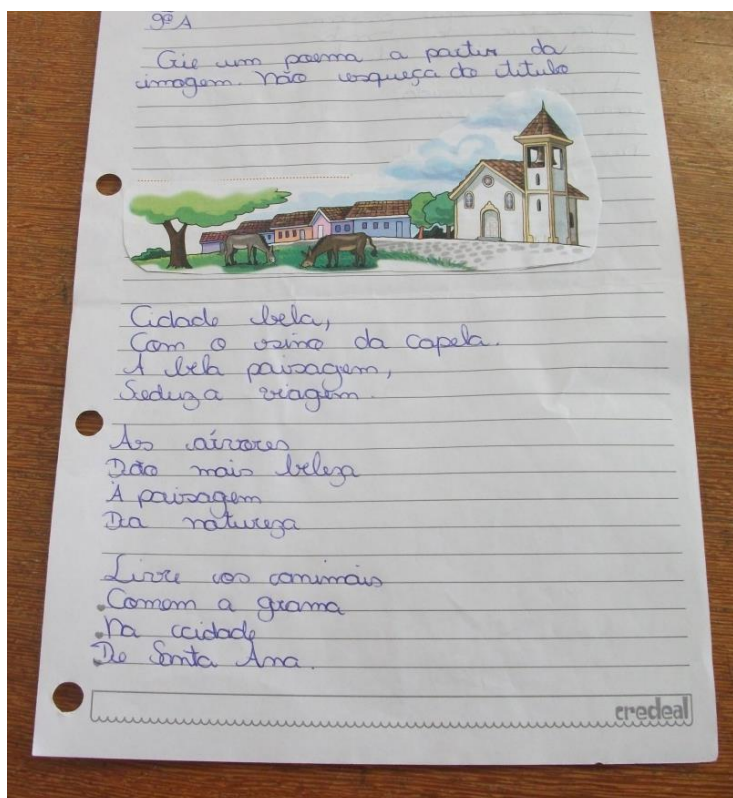 9º A
Crie um poema a partir da
imagem. Não esqueça do título
Cidade bela,
Com o sino da capela.
A bela paisagem,
Seduz a viagem.
As árvores
Dão mais beleza
À paisagem
Da natureza
Livre os animais
Comem a grama
Na cidade
De Santa Ana.
credeal